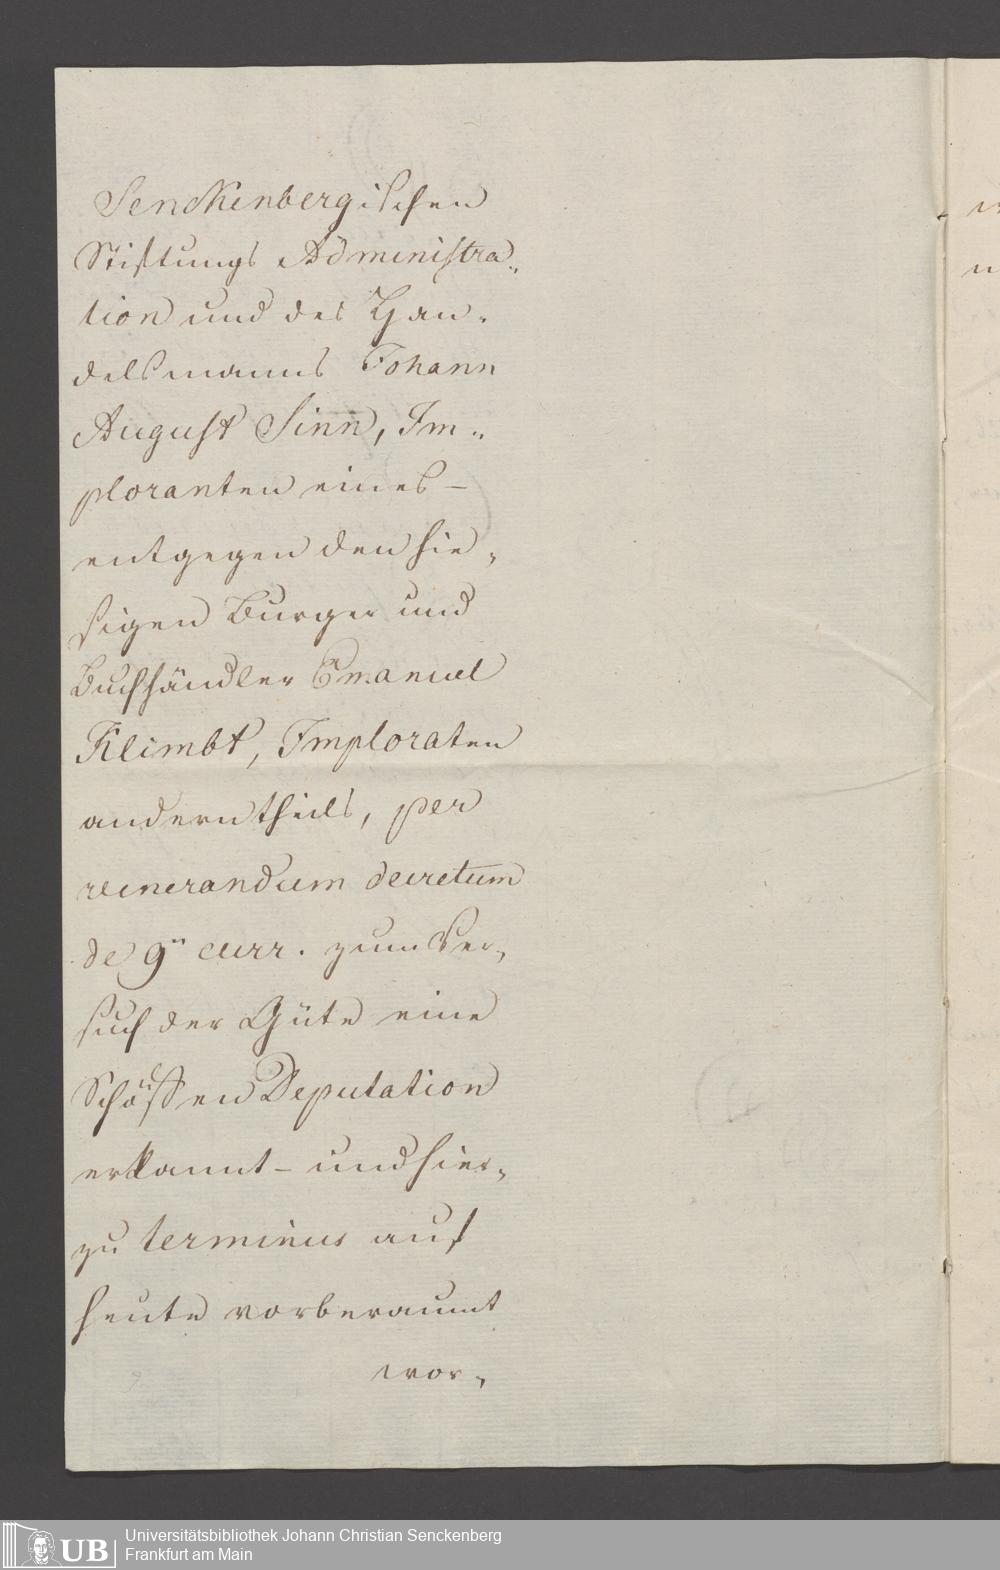 Senckenbergischen
Stiftungs Administra„
tion und des Han„
delsmanns Johann
August Sinn, Im„
ploranten eines –
entgegen den hie„
sigen Burger und
Buchhändler Emanuel
Klimbt, Imploraten
anderntheils, per
venerandum decretum
de 9n curr. zum Ver„
such der Güte eine
Schöffen Deputation
erkannt – und hier„
zu terminus auf
heute vorberaumt
wor„
Universitätsbibliothek Johann Christian Senckenberg
Frankfurt am Main
UB